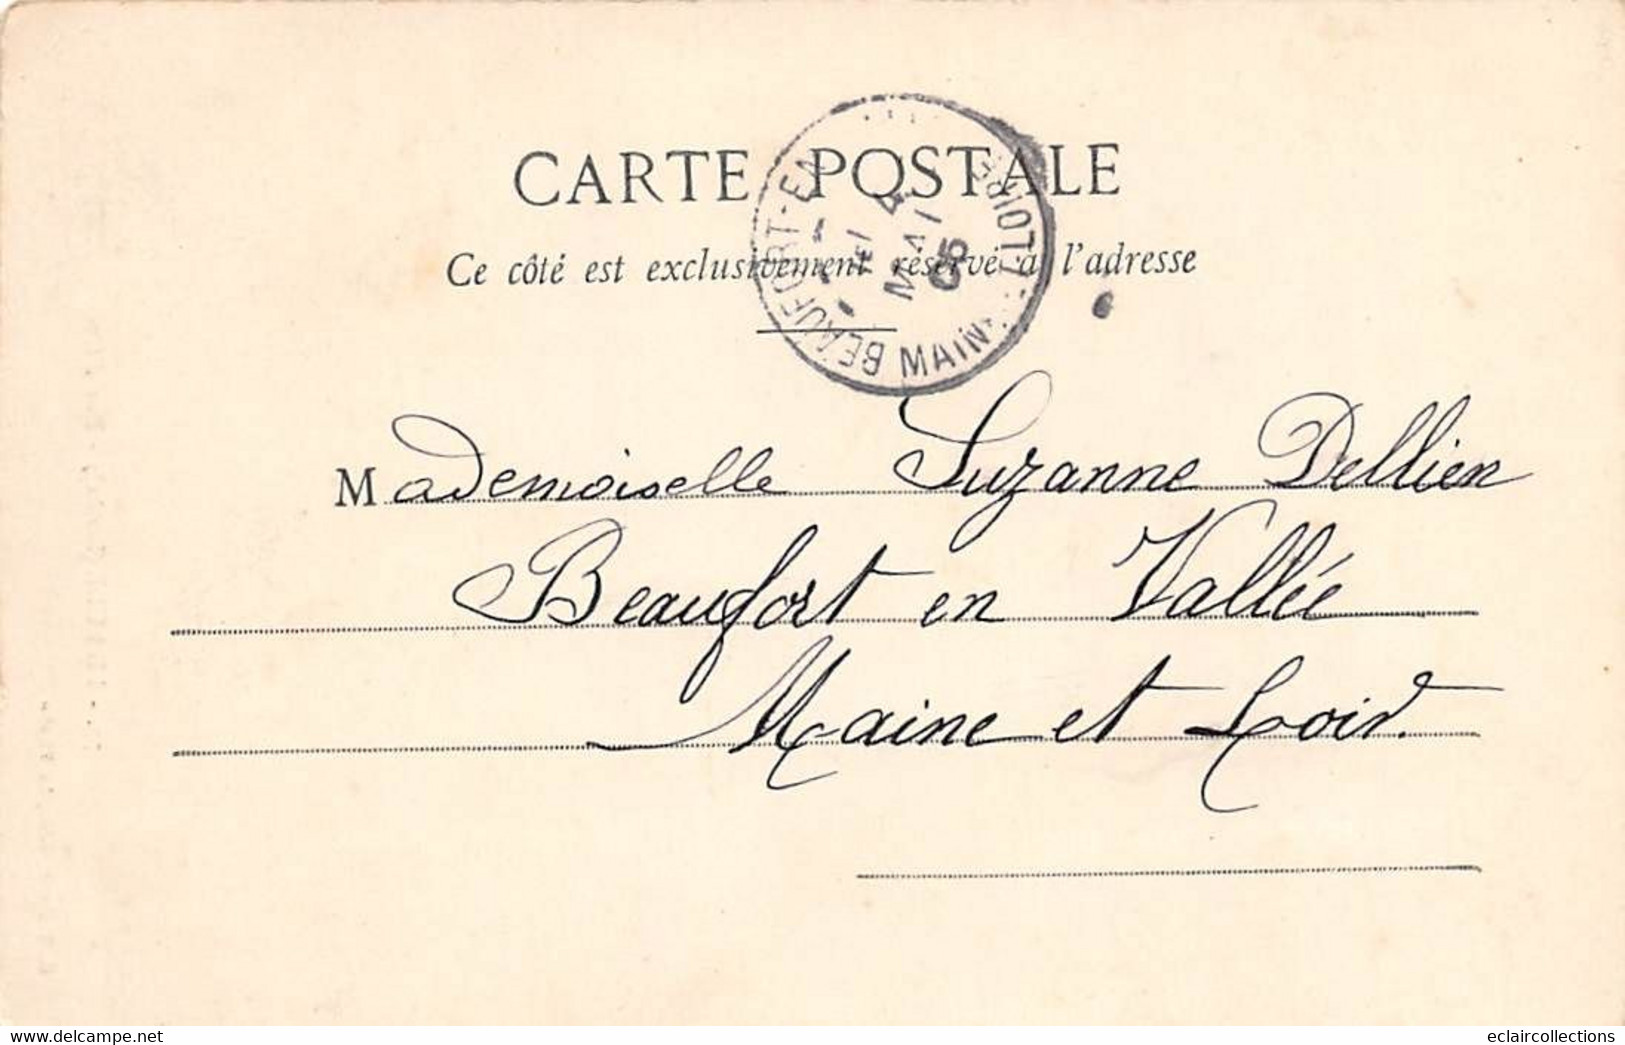 CARTE POSTALE
Ce côté est exclusivement réservé à l'adresse
BEAUFORT-EN
MAI
05
MAIN
LOIRE
Mademoiselle Suzanne Dellien
Beaufort en Vallée
Maine et Loir.
www.delcampe.net
eclaircollections